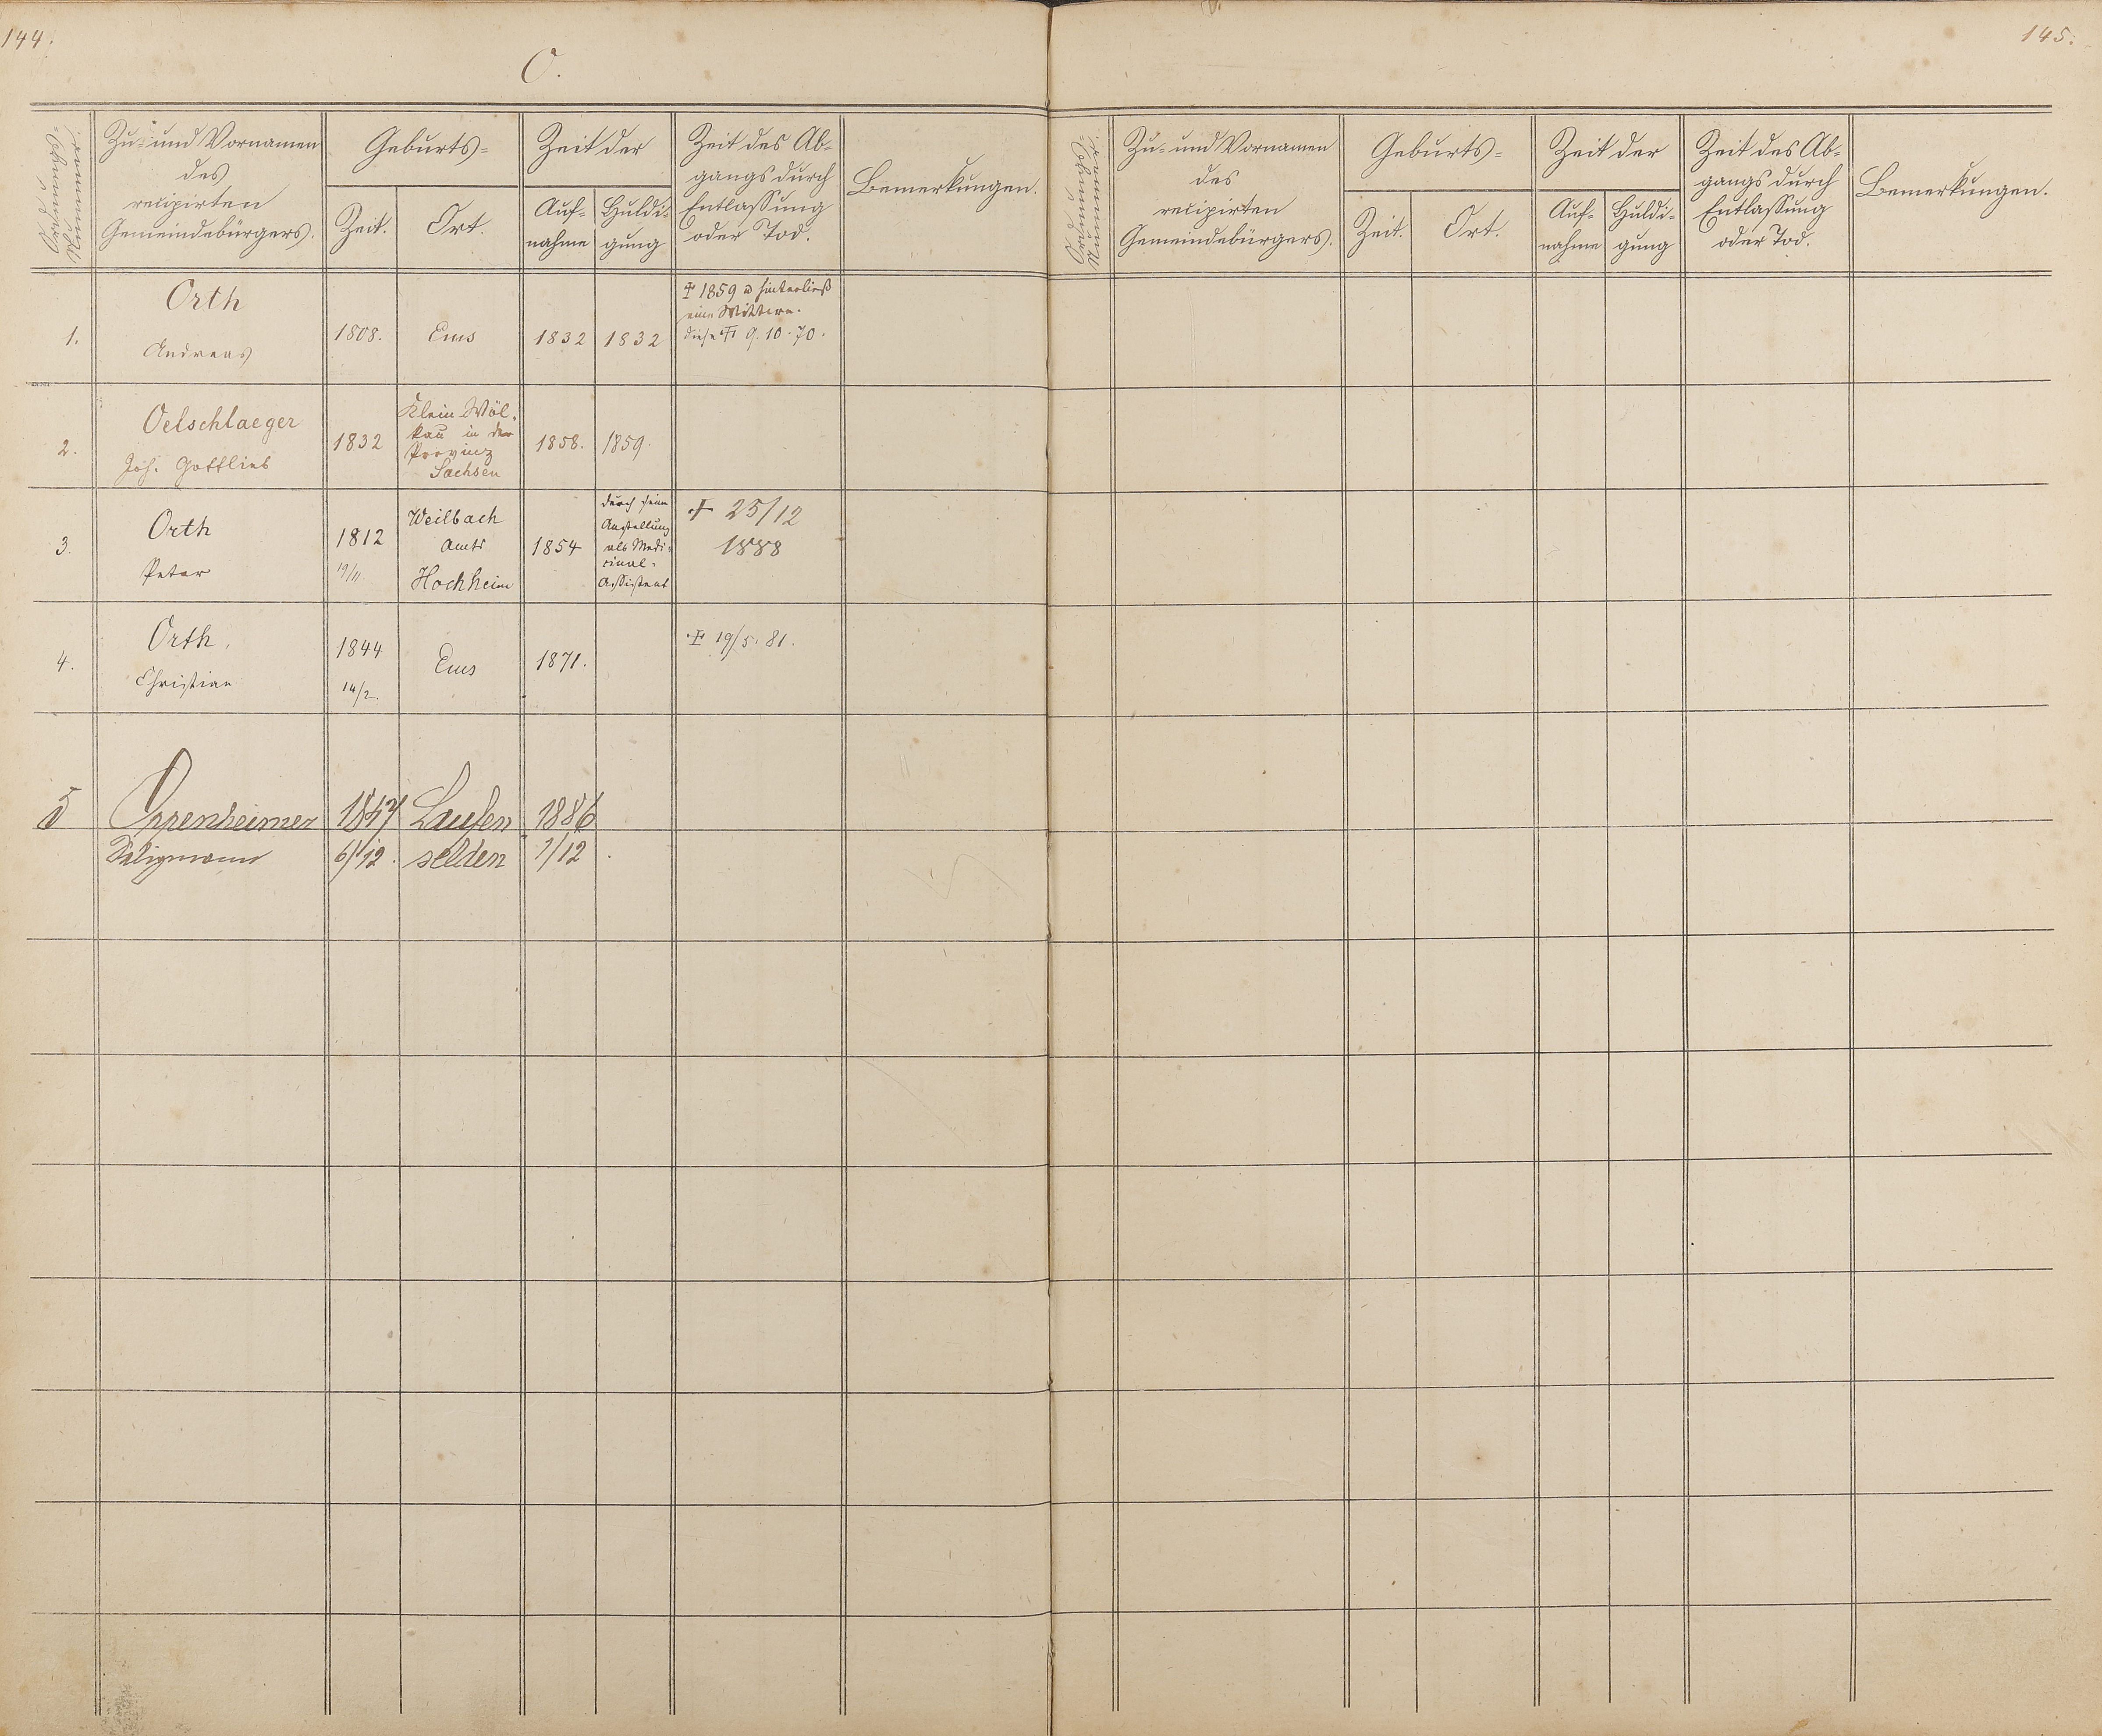 144.
O.
Ordnungs-
Nummer.
Zu- und Vornamen
des
recipirten
Gemeindebürgers.
Geburts-
Zeit.
Ort.
Zeit der
Auf-
nahme
Huldi-
gung
Zeit des Ab-
gangs durch
Entlassung
oder Tod.
Bemerkungen.
1.
Orth
Andreas
1808.
Ems
1832
1832
† 1859 u hinterließ
eine Wittwe.
diese † 9.10.70.
2.
Oelschlaeger
Joh. Gottlieb
1832
Klein Wöl-
kau in der
Provinz
Sachsen
1858.
1859.
3.
Orth
Peter
1812
19/11
Weilbach
Amts
Hochheim
1854
durch seine
Anstellung
als Medi-
cinal-
Assistent
† 25/12
1888
4.
Orth,
Christian
1844
14/2.
Ems
1871.
† 19/5.81.
5
Oppenheimer
Seligmann
1847
6/12.
Laufen
selden
1886
1/12
145.
Ordnungs-
Nummer.
Zu- und Vornamen
des
recipirten
Gemeindebürgers.
Geburts-
Zeit.
Ort.
Zeit der
Auf-
nahme
Huldi-
gung
Zeit des Ab-
gangs durch
Entlassung
oder Tod.
Bemerkungen.